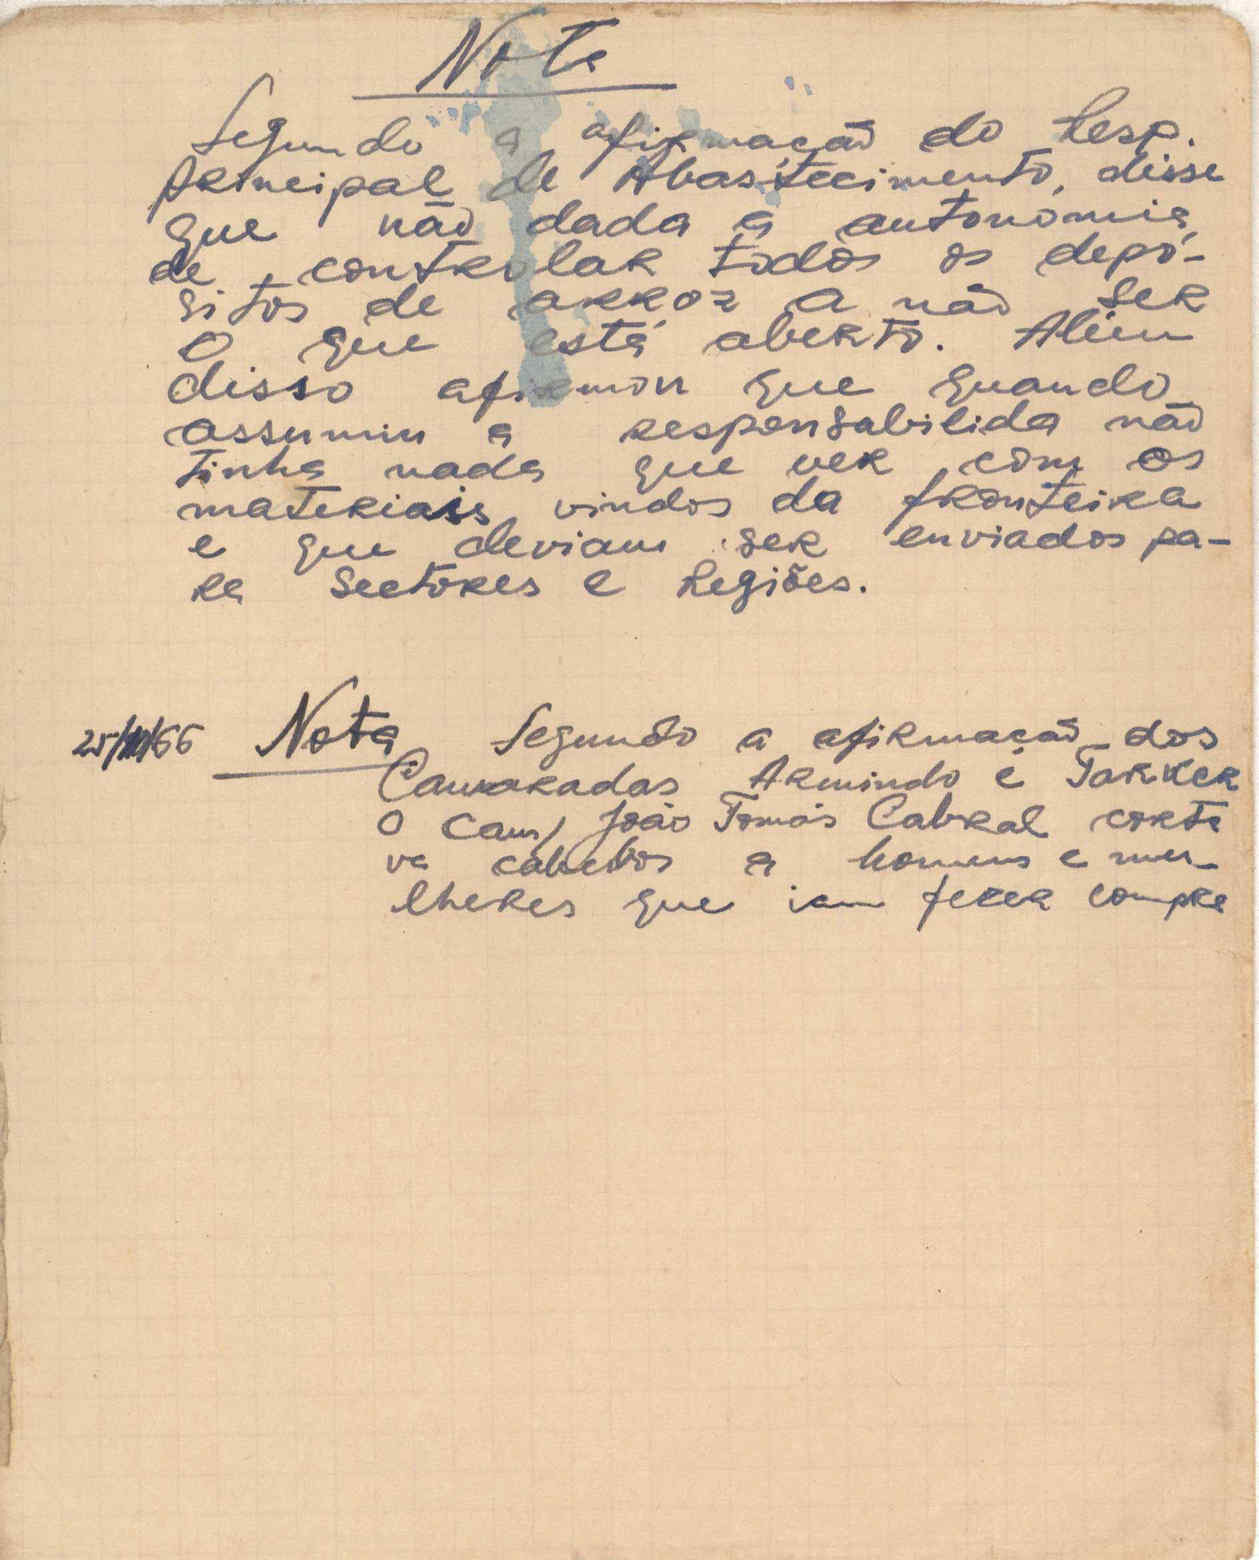 Nota
Segundo a afirmação do Resp.
principal de Abastecimento, disse
que não dada a autonomia
de controlar todos os depó-
sitos de arroz a não ser
o que está aberto. Além
disso afirmou que quando
assumiu a responsabilida não
tinha nada que ver com os
materiais vindos da fronteira
e que deviam ser enviados pa-
ra Sectores e Regiões.
Nota Segundo a afirmação dos
25/ /66
Camaradas Armindo e Tarker
o Cam/ João Tomás Cabral corta
va cabelos a homens e mu-
lheres que iam fezer compra